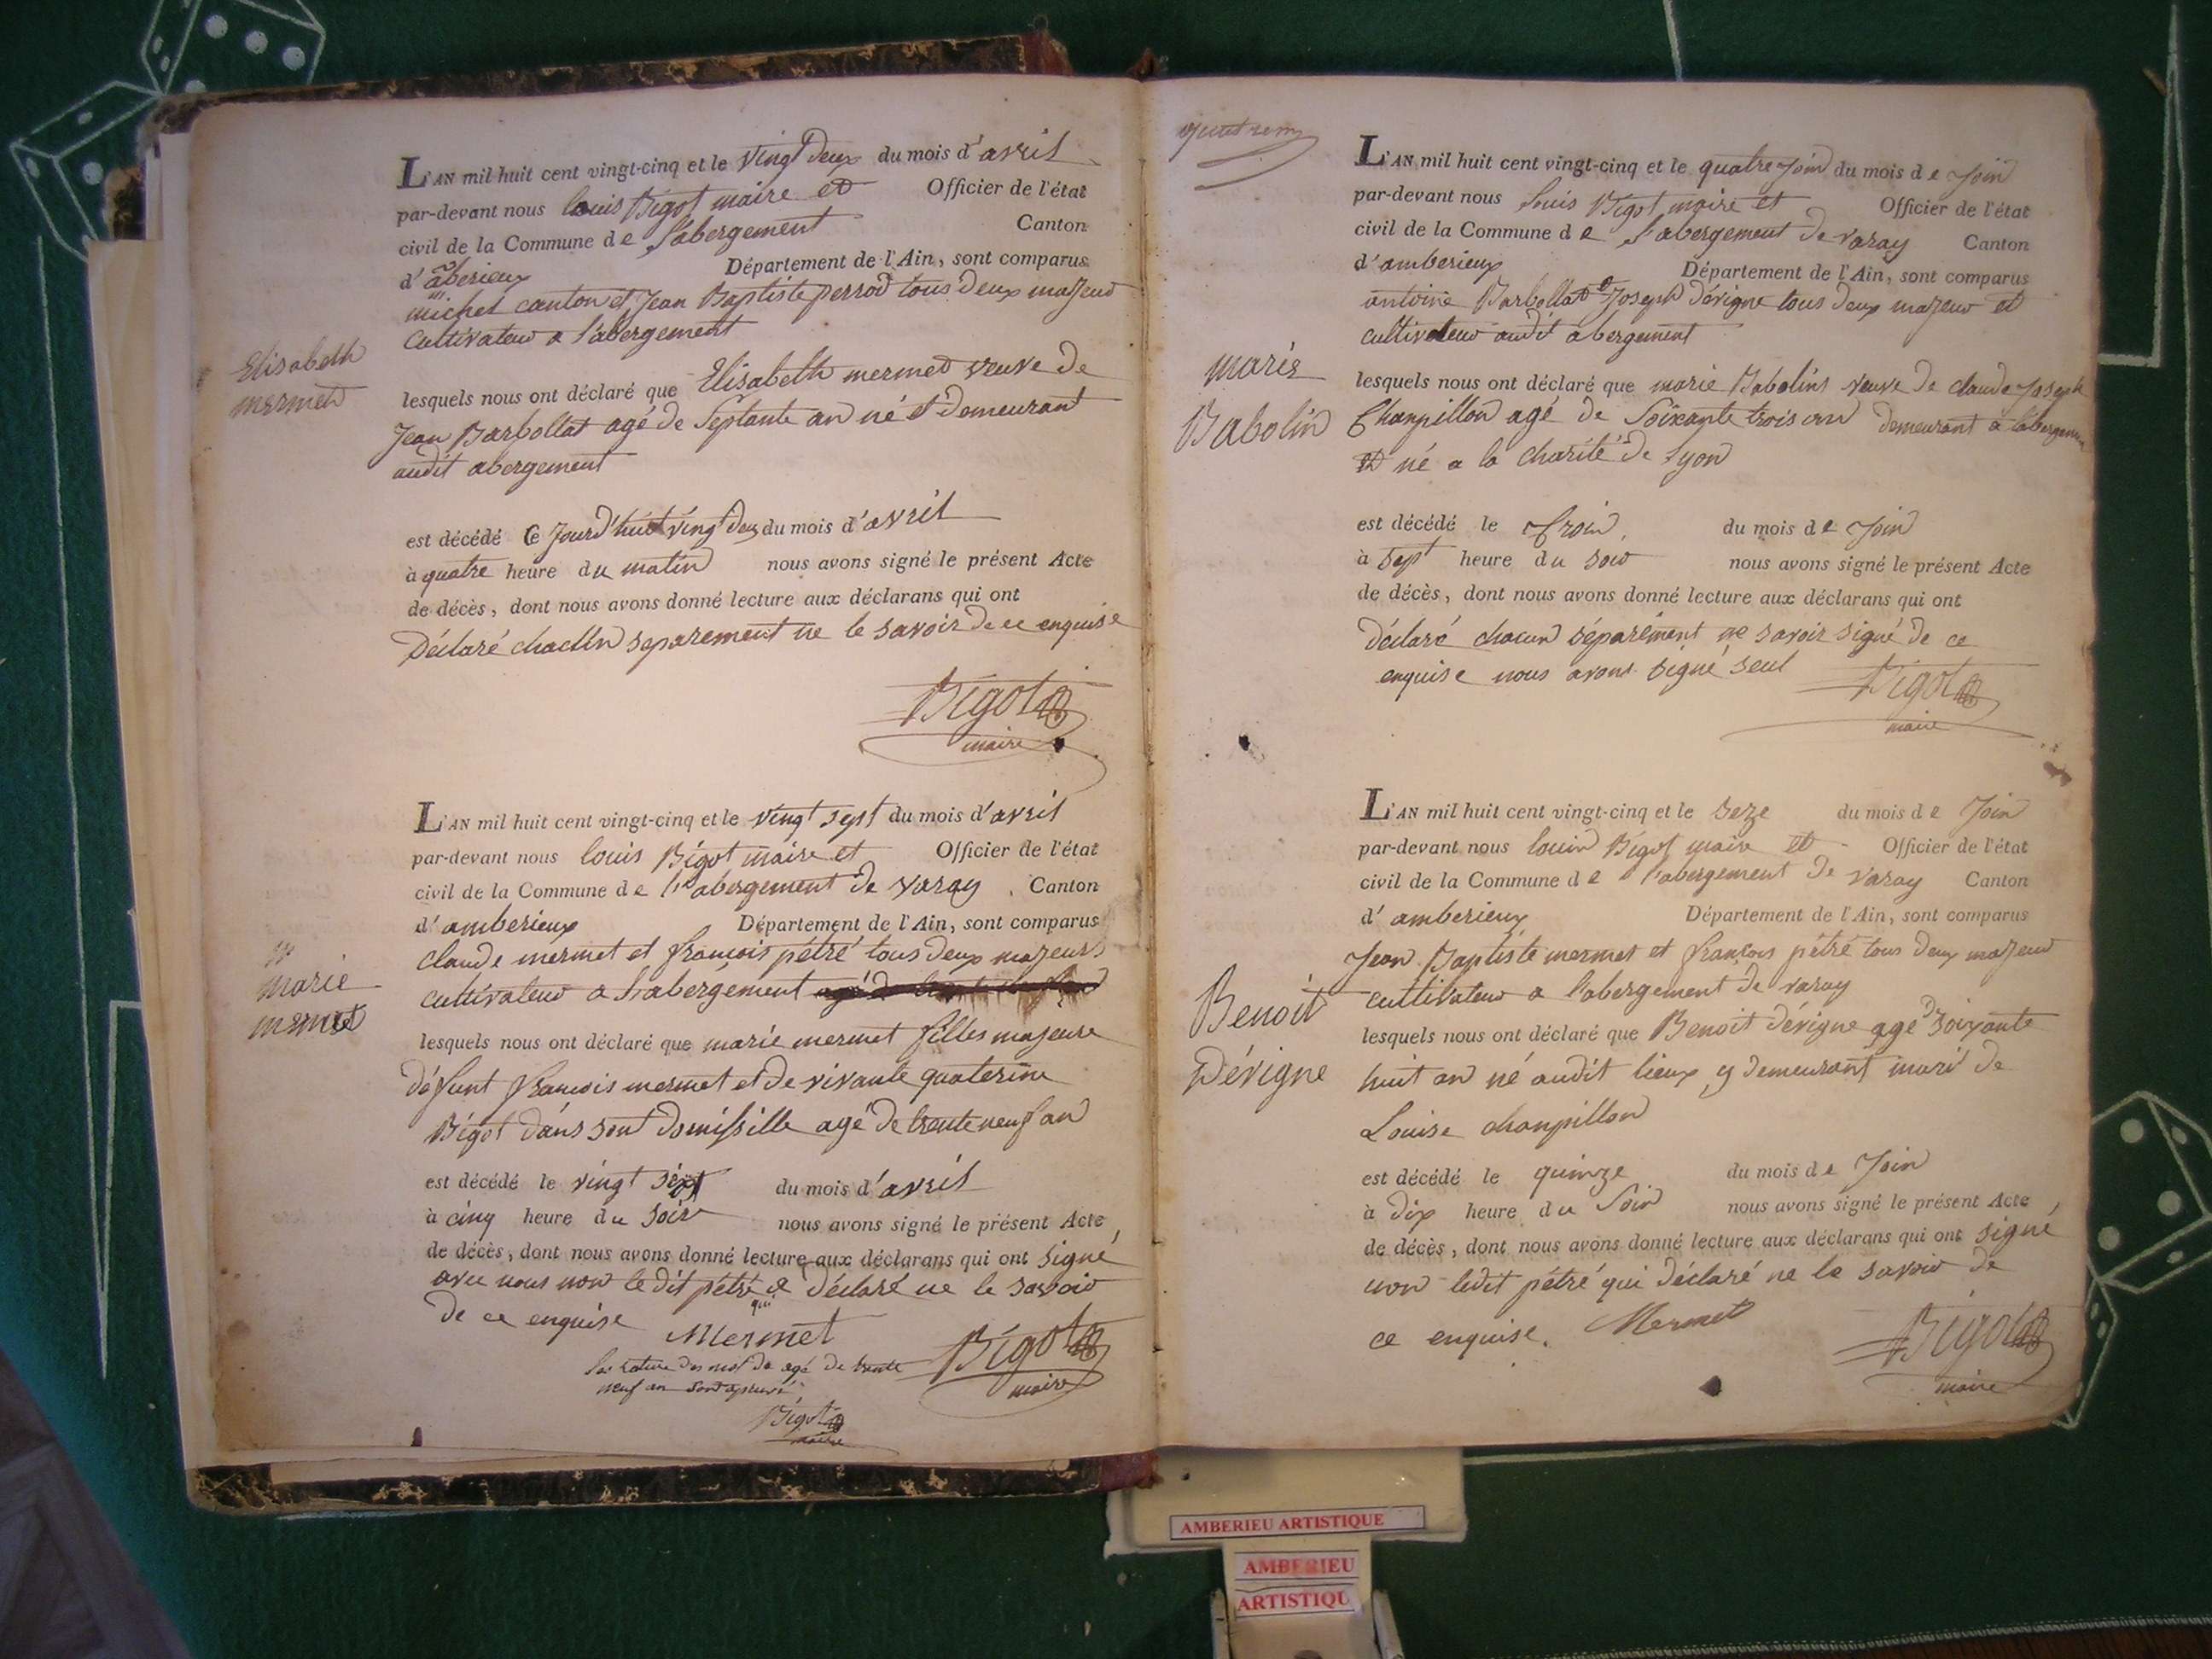 L'AN mil huit cent vingt-cinq et le vingt deux du mois d'avril
par-devant nous louis Bigot maire et Officier de l'état
civil de la Commune de l'abergement Canton
d'amberieux Département de l'Ain, sont comparus
michel canton et Jean Baptiste perrod tous deux majeur
cultivateur a l'abergement
Elisabeth
mermet
lesquels nous ont déclaré que Elisabeth mermet veuve de
Jean Barbollat agé de Septante an né et demeurant
audit abergement
est décédé ce jourd'huit vingt deux du mois d'avril
à quatre heure du matin nous avons signé le présent Acte
de décès, dont nous avons donné lecture aux déclarans qui ont
Déclaré chacun separement ne le savoir de ce enquise
Bigot
maire
L'AN mil huit cent vingt-cinq et le vingt sept du mois d'avril
par-devant nous louis Bigot maire et Officier de l'état
civil de la Commune de l'abergement de varay Canton
d'amberieux Département de l'Ain, sont comparus
claude mermet et francois pétré tous deux majeurs
cultivateur a l'abergement
marie
mermet
lesquels nous ont déclaré que marie mermet filles majeure
défunt francois mermet et de vivante quaterine
Bigot dans sont domissille agé de trente neuf an
est décédé le vingt du mois d'avril
à cinq heure du soir nous avons signé le présent Acte
de décès, dont nous avons donné lecture aux déclarans qui ont signé
avec nous non le dit pétré qui déclaré ne le savoir
de ce enquise
Mermet
Bigot
maire
la rature des mot de agé de trente
neuf an sont
Bigot
maire
L'AN mil huit cent vingt-cinq et le quatre Join du mois de Join
par-devant nous louis Bigot maire et Officier de l'état
civil de la Commune de l'abergement de varay Canton
d'amberieux Département de l'Ain, sont comparus
antoine Barbollat et Joseph dévigne tous deux majeur et
cultivateur audit abergement
marie
Babolin
lesquels nous ont déclaré que marie Babolins veuve de claude Joseph
Chanpillon agé de Soixante trois an demeurant a l'abergement
et né a la charité de Lyon
est décédé le trois du mois de Join
à sept heure du soir nous avons signé le présent Acte
de décès, dont nous avons donné lecture aux déclarans qui ont
déclaré chacun séparément ne savoir signé de ce
enquise nous avons signé seul
Bigot
maire
L'AN mil huit cent vingt-cinq et le seze du mois de Join
par-devant nous louis Bigot maire et Officier de l'état
civil de la Commune de l'abergement de varay Canton
d'amberieux Département de l'Ain, sont comparus
Jean Baptiste mermet et françois pétré tous deux majeur
cultivateur a l'abergement de varay
Benoit
Dévigne
lesquels nous ont déclaré que Benoit dévigne agé de soixante
huit an né audit lieux y demeurant mari de
Louise chanpillon
est décédé le quinze du mois de Join
à dix heure du Soir nous avons signé le présent Acte
de décès, dont nous avons donné lecture aux déclarans qui ont signé
non ledit pétré qui déclaré ne le savoir de
ce enquise.
Mermet
Bigot
maire
AMBERIEU ARTISTIQUE
AMBERIEU
ARTISTIQU